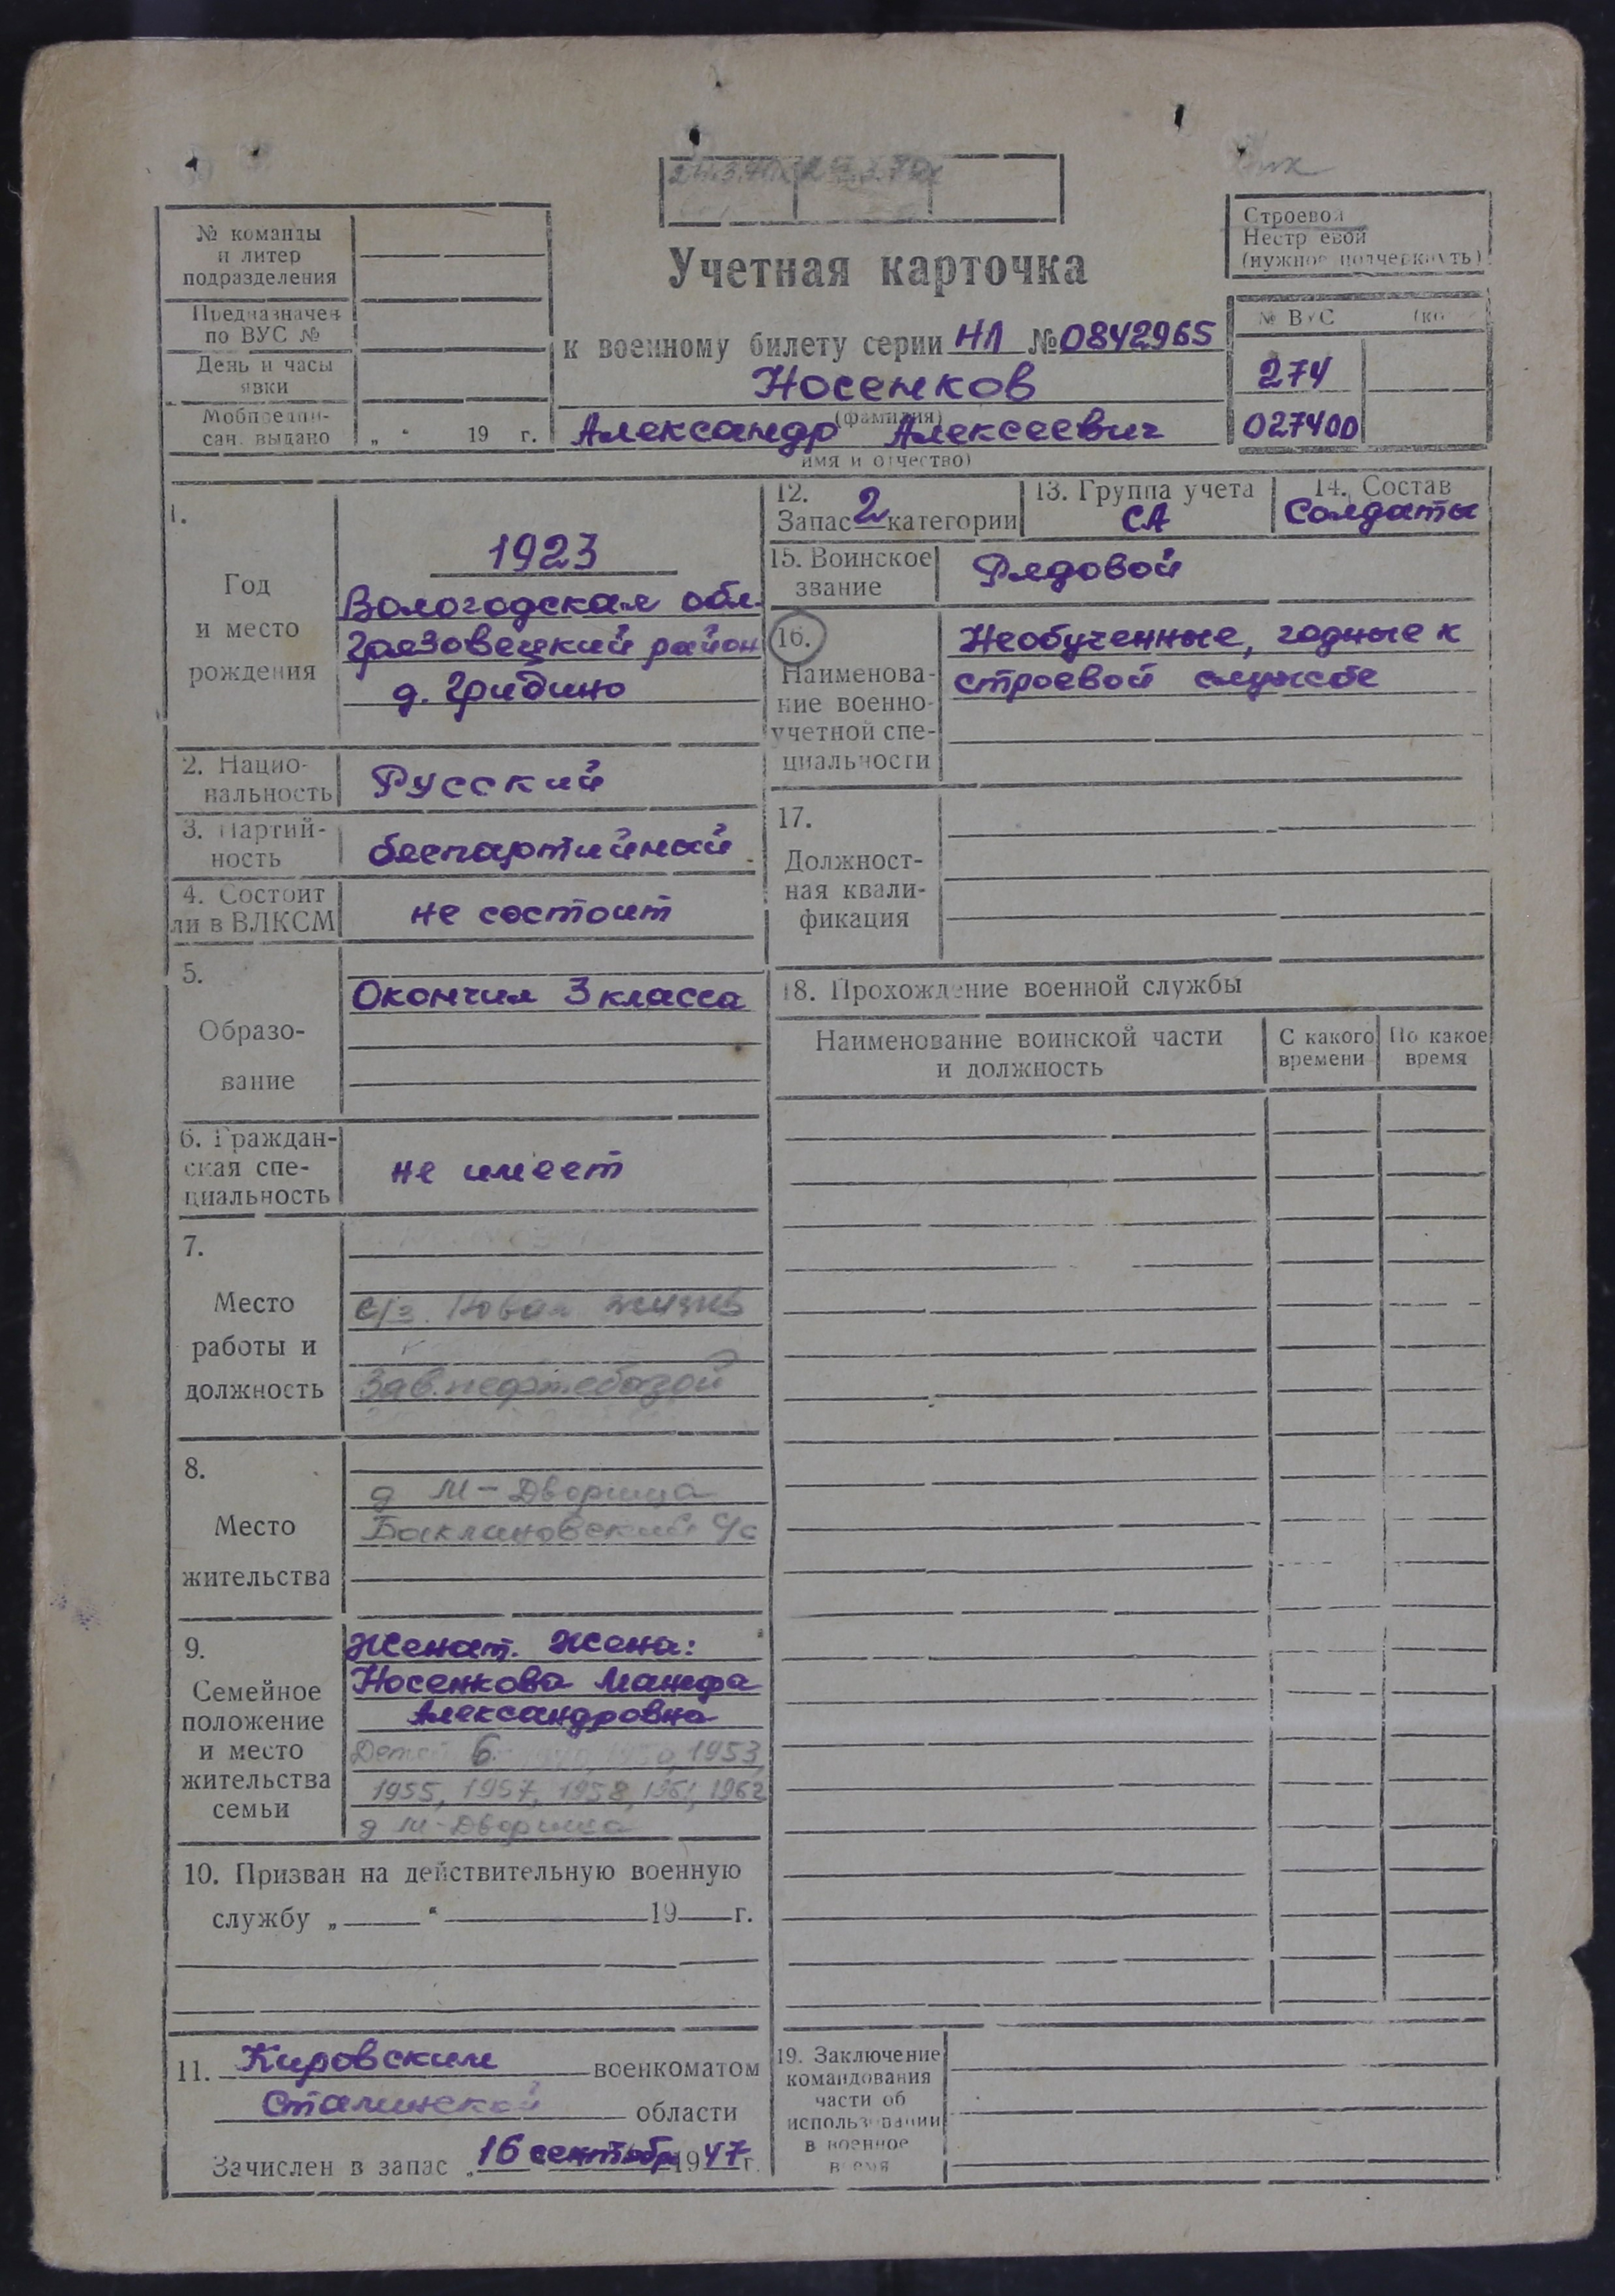 Строевой
Нестроевой
(нужное подчеркнуть)
№ команды
и литер
подразделения
Предназначен
по ВУС №
День и часы
явки
Мобпредпи-
сан. выдано „ “ 19 г.
Учетная карточка
к военному билету серии НЛ № 0842965
Носенков
(фамилия)
Александр Алексеевич
имя и отчество)
№ ВУС
274
027400
1.
Год
и место
рождения
1923
Вологодская обл.
Грязовецкий район
д. Гридино
2. Нацио-
нальность
Русский
3. Партий-
ность
беспартийный
4. Состоит
ли в ВЛКСМ
не состоит
5.
Образо-
вание
Окончил 3 класса
6. Граждан-
ская спе-
циальность
не имеет
7.
Место
работы и
должность
с/з. Новая жизнь
Зав. нефтебазой
8.
Место
жительства
д М-Дворища
Баклановский с/с
9.
Семейное
положение
и место
жительства
семьи
Женат. Жена:
Носенкова Манефа
Александровна
Детей 6. 1950, 1953,
1955, 1957, 1958, 1961, 1962
д М-Дворища
10. Призван на действительную военную
службу „ “ 19 г.
11. Кировским военкоматом
Сталинской области
Зачислен в запас „16 сентябр 1947 г.
12.
Запас 2 категории
13. Группа учета
СА
14. Состав
Солдаты
15. Воинское
звание
Рядовой
16.
Наименова-
ние военно-
учетной спе-
циальности
Необученные, годные к
строевой службе
17.
Должност-
ная квали-
фикация
18. Прохождение военной службы
Наименование воинской части
и должность
С какого
времени
По какое
время
19. Заключение
командования
части об
использовании
в военное
время